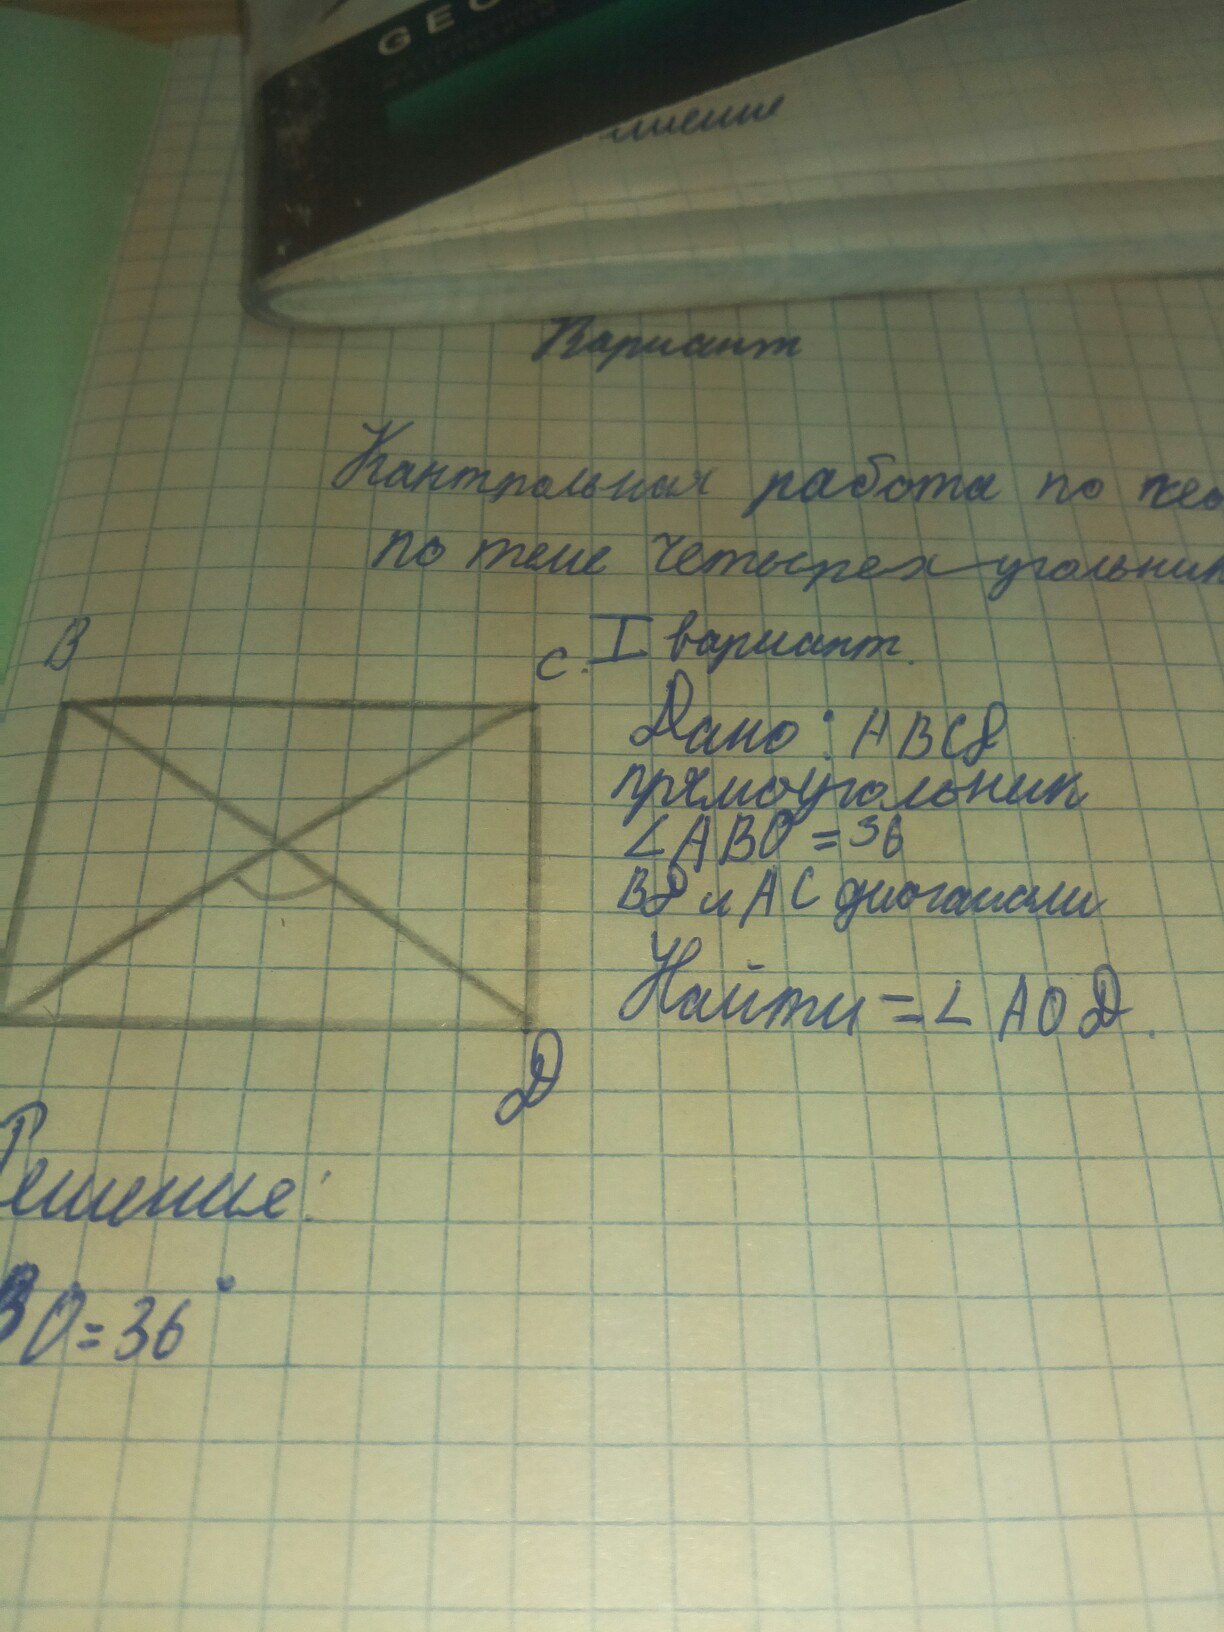 GEO
Вариант
Кантрольная работа по
по теме Четырех угольник
B
C.
I вариант.
Дано: ABCD
прямоугольник
∠ABO=36
BD и AC диоганали
Найти=∠AOD.
D
Решение:
BO=36°